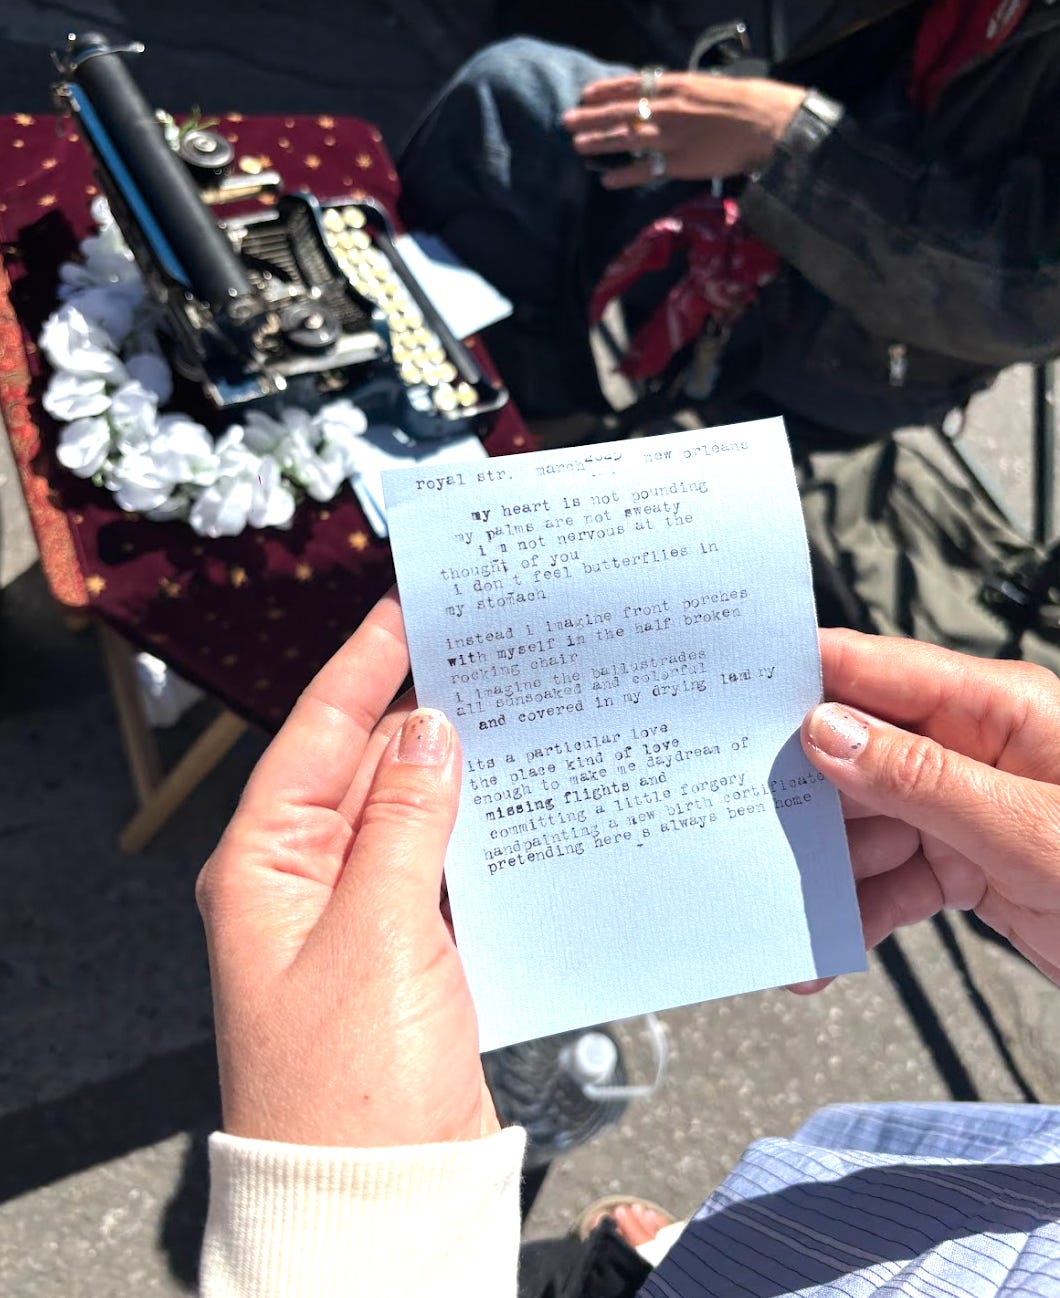 royal str. march 2025 new orleans
my heart is not pounding
my palms are not sweaty
i m not nervous at the
thought of you
i don t feel butterflies in
my stomach
instead i imagine front porches
with myself in the half broken
rocking chair
i imagine the ballustrades
all sunsoaked and colorful
and covered in my drying laundry
its a particular love
the place kind of love
enough to make me daydream of
missing flights and
committing a little forgery
handpainting a new birth certificate
pretending here s always been home